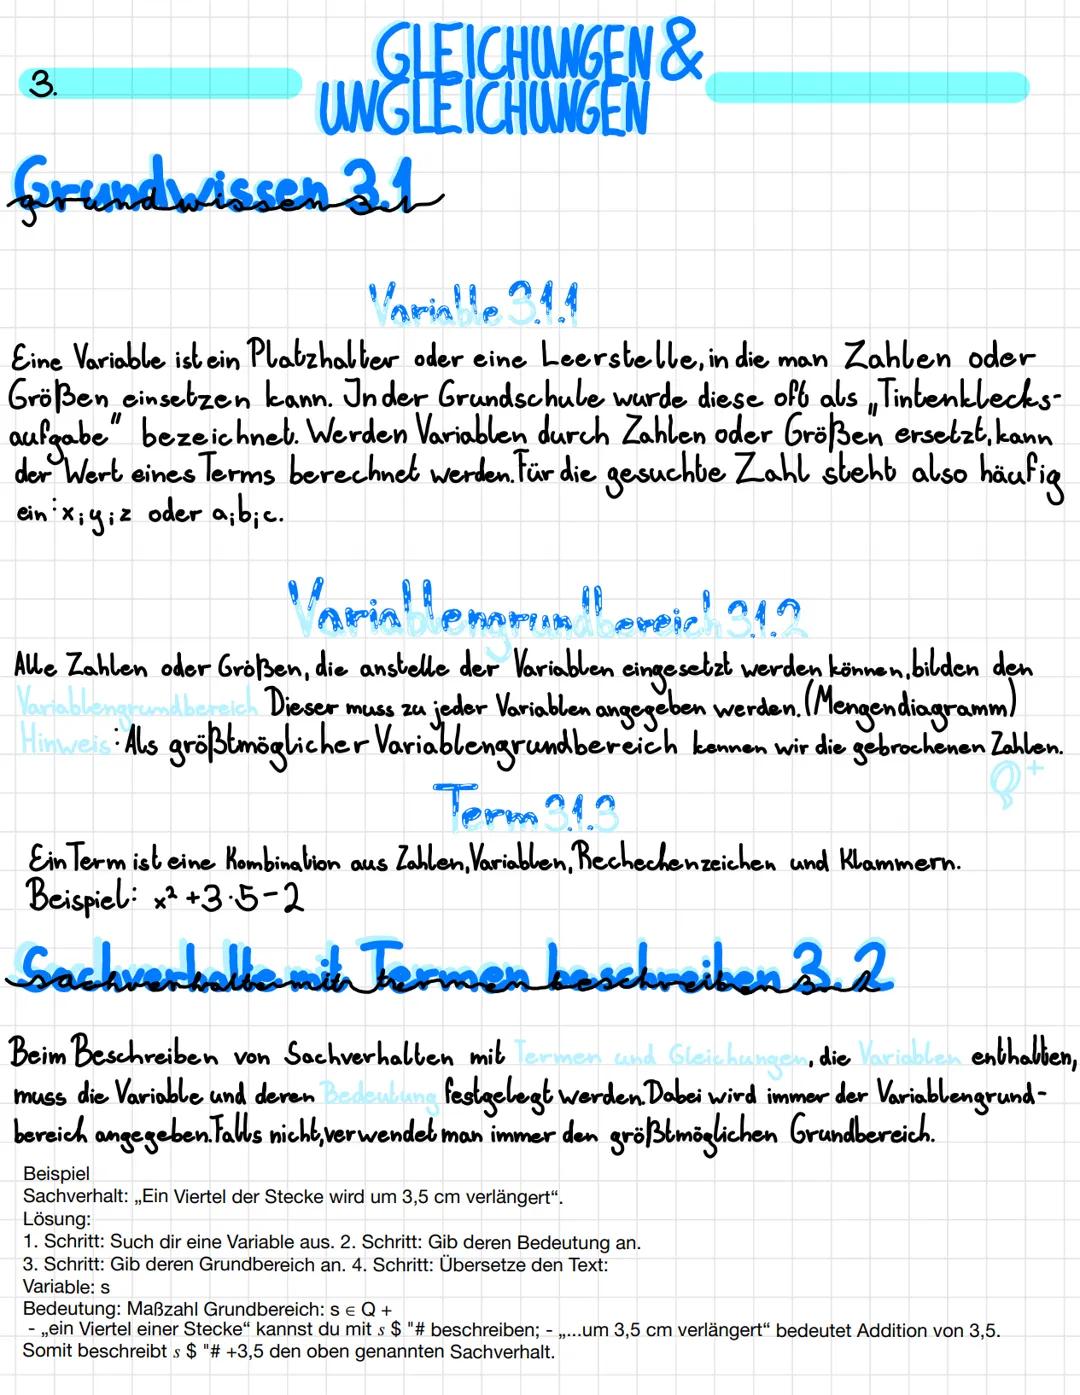 3.
GLEICHUNGEN &
UNGLEICHUNGEN
Grundwissen 3.1
grundwissen 3.1
Variable 3.1.1
Eine Variable ist ein Platzhalter oder eine Leerstelle, in die man Zahlen oder
Größen einsetzen kann. In der Grundschule wurde diese oft als „Tintenklecks-
aufgabe" bezeichnet. Werden Variablen durch Zahlen oder Größen ersetzt, kann
der Wert eines Terms berechnet werden. Für die gesuchte Zahl steht also häufig
ein: x; y; z oder a; b; c.
Variablengrundbereich 3.1.2
Alle Zahlen oder Größen, die anstelle der Variablen eingesetzt werden können, bilden den
Variablengrundbereich Dieser muss zu jeder Variablen angegeben werden. (Mengendiagramm)
Hinweis: Als größtmöglicher Variablengrundbereich kennen wir die gebrochenen Zahlen.
Q+
Term 3.1.3
Ein Term ist eine Kombination aus Zahlen, Variablen, Rechechenzeichen und Klammern.
Beispiel: x² + 3 · 5 - 2
Sachverhalte mit Termen beschreiben 3.2
sachverhalte mit termen beschreiben 3.2
Beim Beschreiben von Sachverhalten mit Termen und Gleichungen, die Variablen enthalten,
muss die Variable und deren Bedeutung festgelegt werden. Dabei wird immer der Variablengrund-
bereich angegeben. Falls nicht, verwendet man immer den größtmöglichen Grundbereich.
Beispiel
Sachverhalt: „Ein Viertel der Stecke wird um 3,5 cm verlängert“.
Lösung:
1. Schritt: Such dir eine Variable aus. 2. Schritt: Gib deren Bedeutung an.
3. Schritt: Gib deren Grundbereich an. 4. Schritt: Übersetze den Text:
Variable: s
Bedeutung: Maßzahl Grundbereich: s ∈ Q +
- „ein Viertel einer Stecke“ kannst du mit s $ "# beschreiben; - „...um 3,5 cm verlängert“ bedeutet Addition von 3,5.
Somit beschreibt s $ "# +3,5 den oben genannten Sachverhalt.